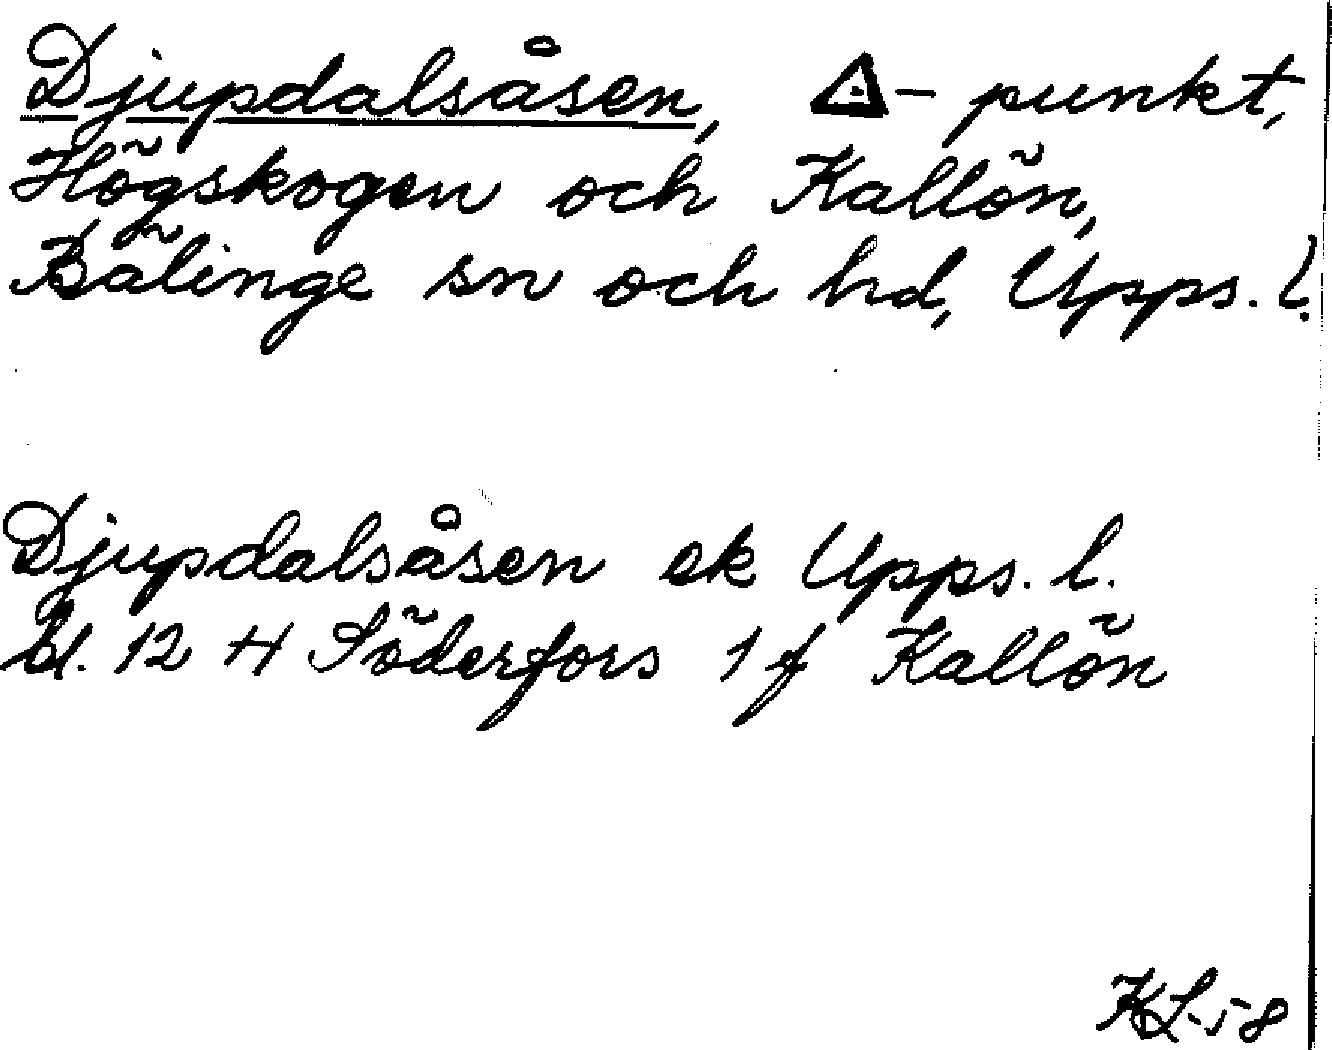 Djupdalsåsen, △ - punkt,
Högskogen och Kallön,
Bälinge sn och hd, Upps. l.
Djupdalsåsen ek Upps. l.
bl. 12 H Söderfors 1 f Kallön
KL-58